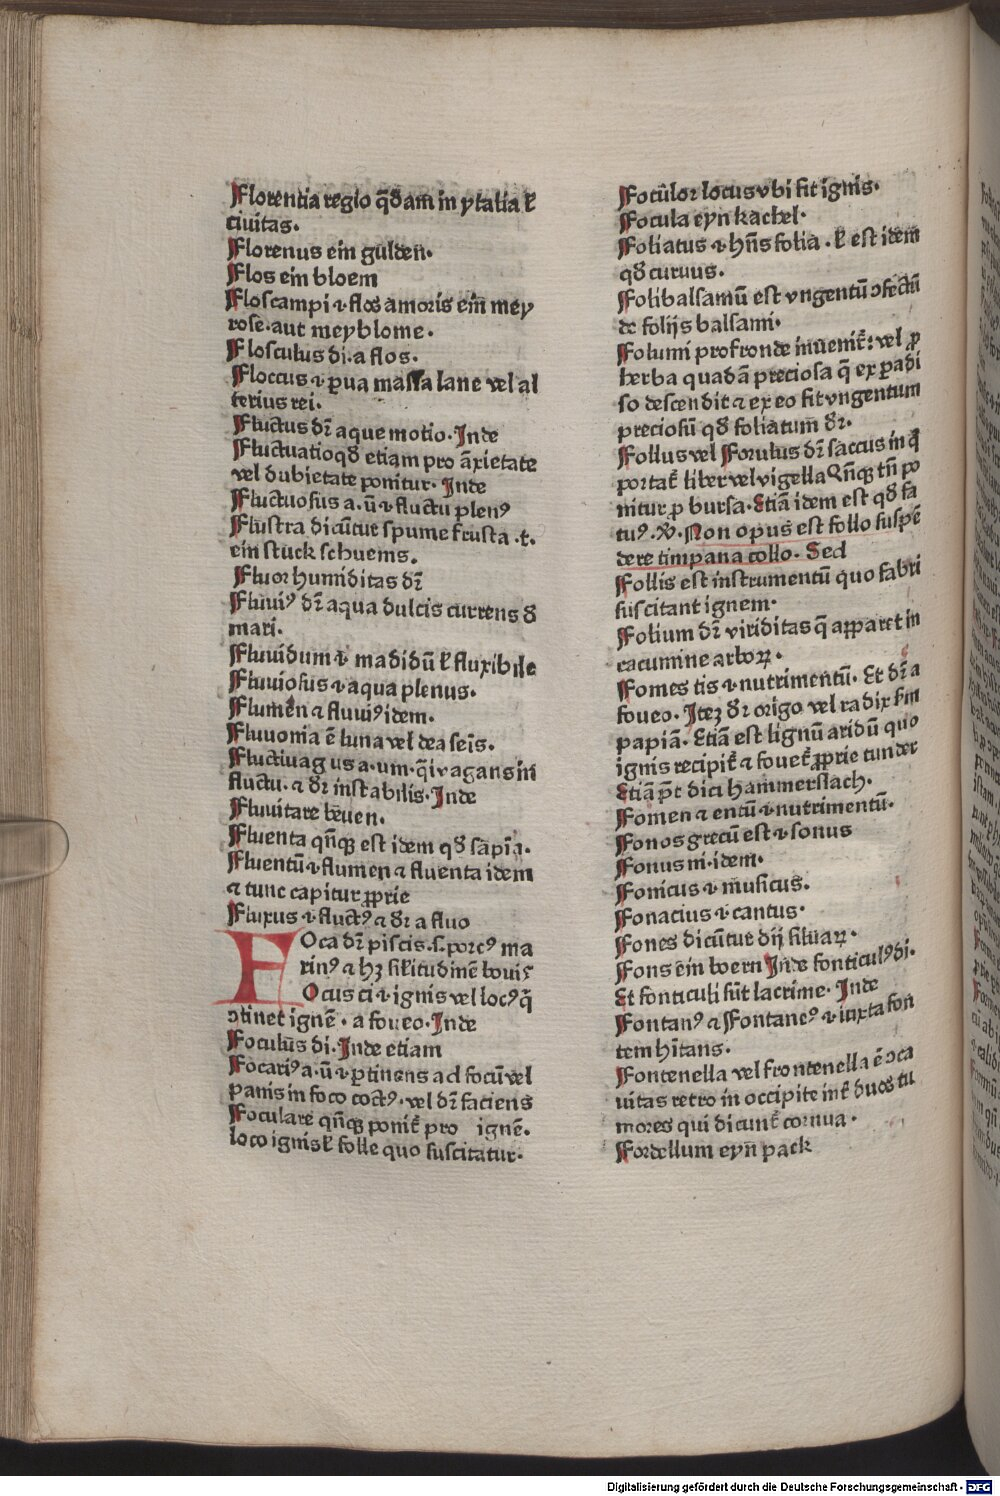 Florentia regio q̄dam in ytalia ł
ciuitas.
Florenus ein gulden.
Flos ein bloem
Floscampi ⁊ flos amoris ein̄ mey
rose. aut meyblome.
Flosculus di. a flos.
Floccus .i. ꝑua massa lane vel al
terius rei.
Fluctus dr̄ aque motio. Inde
Fluctuatio qꝫ etiam pro āxietate
vel dubietate ponitur. Inde
Fluctuosus a. ū .i. fluctu plenꝰ
Flustra dicūtur spume frusta .t.
ein stuck schuems.
Fluor humiditas dr̄
Fluuiꝰ dr̄ aqua dulcis currens ð
mari.
Fluuidum .i. madidū ł fluxibile
Fluuiosus .i. aqua plenus.
Flumen ⁊ fluuiꝰ idem.
Fluuonia ē luna vel dea
Fluctiuagus a. um. q̄ ivagans in
fluctu. ⁊ ðr instabilis. Inde
Fluuitare
Fluenta qn̄qꝫ est idem qð
Fluentū .i. flumen ⁊ fluenta idem
⁊ tunc capitur ꝓprie
Fluxus .i. fluctꝰ ⁊ ðr a fluo
FOca dr̄ piscis .s. porcꝰ ma
rinꝰ ⁊ hꝫ silitudinē bouis
FOcus ci .i. ignis vel locꝰ q̄
ↄtinet ignē. a foueo. Inde
Foculus di. Inde etiam
Focariꝰ a. ū .i. ꝑtinens ad focū vel
panis in foco coctꝰ. vel dr̄ faciens
Foculare qn̄qꝫ ponit̄ pro ignē.
loco ignis ł folle quo suscitatur.
Focūlor locus vbi fit ignis.
Focula eyn kachel.
Foliatus .i. hn̄s folia. ł est idem
qð curuus.
Folibalsamū est vngentū ↄfectū
de folijs balsami.
Folumi pro fronde inuenit̄: vel ꝓ
herba quadā preciosa q̄ ex ꝑadi
so descendit ⁊ ex eo fit vngentum
preciosū qð foliatum ðr.
Follus vel Forulus dr̄ saccus in q̄
portat̄ liber vel vigella Qn̄qꝫ tn̄ po
nitur ꝓ bursa. Etiā idem est qð fa
tuꝰ. W. Non opus est follo suspē
dere timpana collo. Sed
Follis est instrumentū quo fabri
suscitant ignem.
Folium dr̄ viriditas q̄ apparet in
cacumine arboꝝ.
Fomes tis .i. nutrimentū. Et dr̄ a
foueo. Iteꝫ ðr origo vel radix sm̄
papiā. Etiā est lignū aridū quo
ignis recipit̄ ⁊ fouet̄ ꝓprie tunder
Etiā p̄t dici hammerslach.
Fomen ⁊ entū .i. nutrimentū.
Fonos grecū est .i. sonus
Fonus ni. idem.
Fonicus .i. musicus.
Fonacius .i. cantus.
Fones dicūtur dij siluaꝝ.
Fons ein boern Inde fonticulꝰ di.
Et fonticuli sūt lacrime. Inde
Fontanꝰ ⁊ Fontaneꝰ .i. iuxta fon
tem hītans.
Fontenella vel frontenella ē ↄca
uitas retro in occipite int̄ duos tu
mores qui dicunt̄ cornua.
Fordellum eyn pack
Digitalisierung gefördert durch die Deutsche Forschungsgemeinschaft - DFG